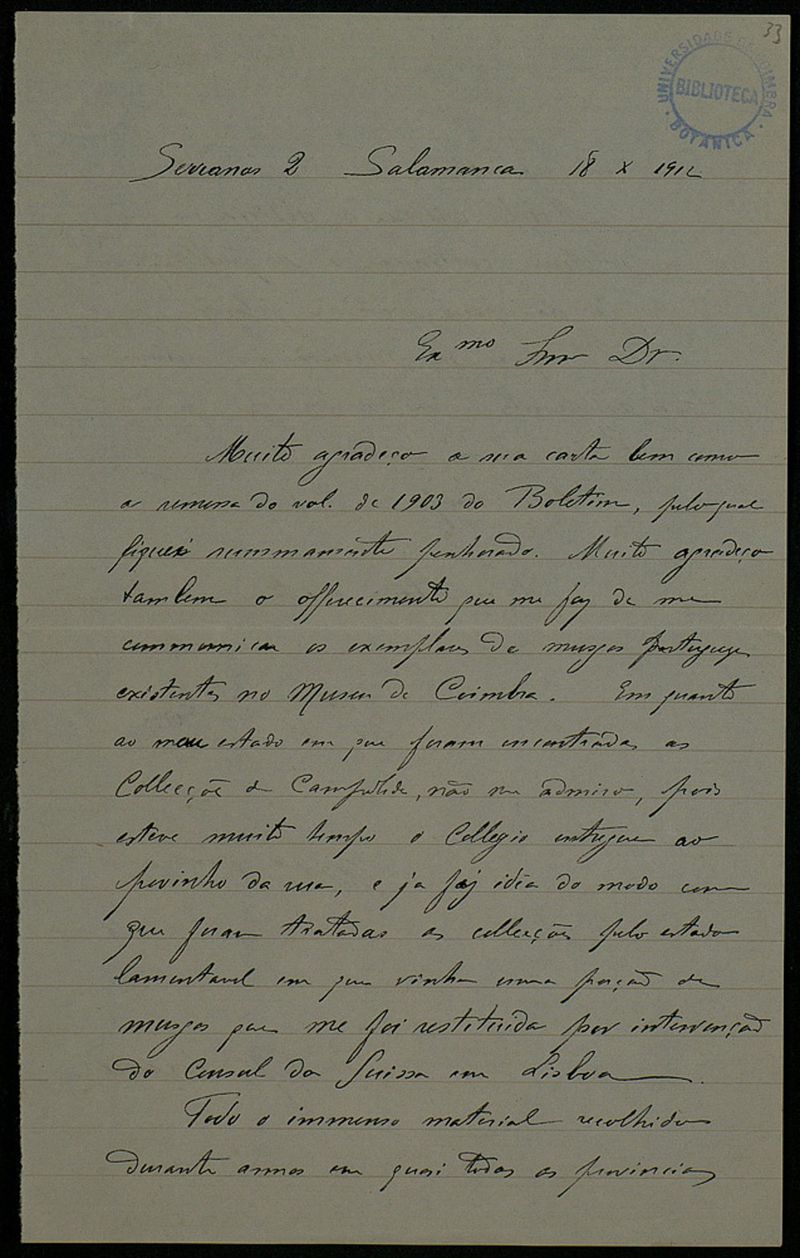 33
UNIVERSIDADE DE COIMBRA
BIBLIOTECA
BOTANICA
Serranos 2 Salamanca 18 X 1912
Exmo Snr Dr.
Muito agradeço a sua carta bem como
a remessa do vol. de 1903 do Boletim, pelo qual
fiquei summamente penhorado. Muito agradeço
tambem o offerecimento que me faz de me
communicar os exemplares de musgos portuguezes
existentes no Museu de Coimbra. Em quanto
ao mau estado em que foram encontradas as
Collecçõe de Campolide, não me admiro, pois
esteve muito tempo o Collegio entregue ao
povinho da rua, e ja faz idéa do modo com
que foram tratadas as collecções pelo estado
lamentavel em que vinha uma porção de
musgos que me foi restituida por intervenção
do Consul da Suissa em Lisboa.
Todo o immenso material recolhido
durante annos em quasi todas as provincias